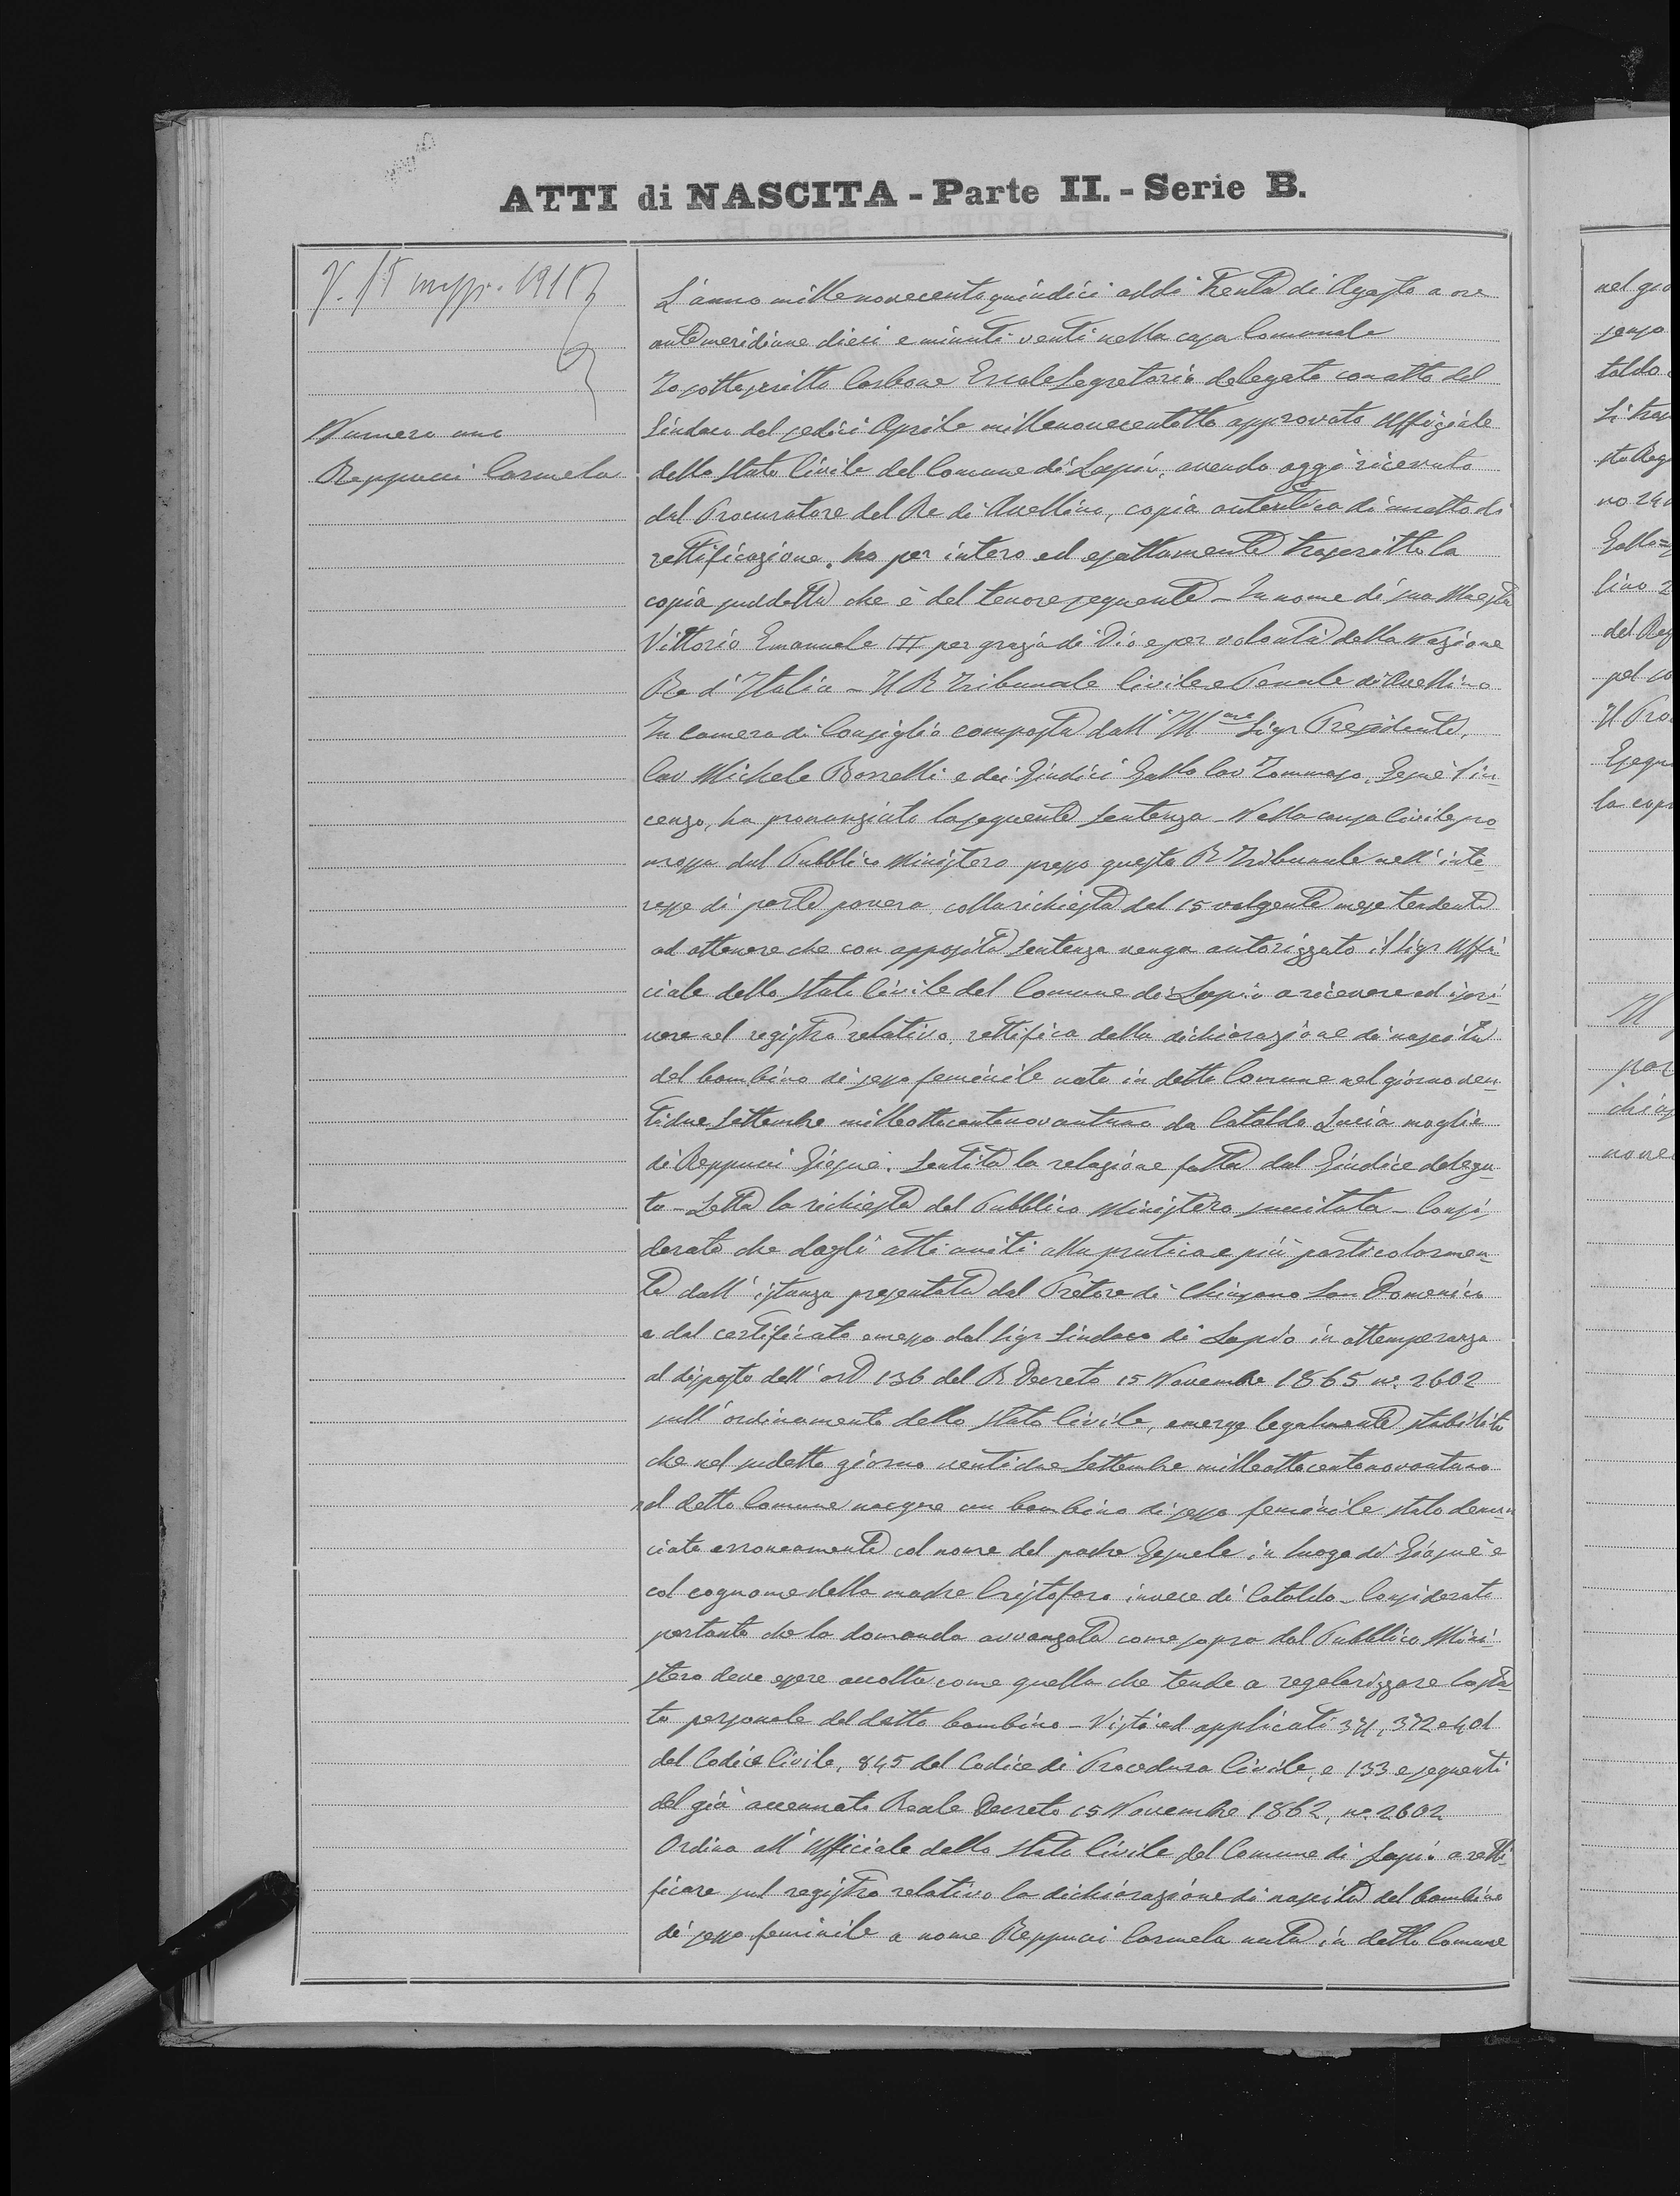 ATTI di NASCITA - Parte II. - Serie B.
Numero uno
Reppucci Carmela
L'anno millenovecentoquindici addi trenta di Agosto a ore
antemeridiane dieci e minuti venti nella casa Comunale
Io sottoscritto Carbone Ercole Segretario delegato con atto del
Sindaco del sedici Aprile millenovecentotto approvato Uffiziale
dello Stato Civile del Comune di Lapio, avendo oggi ricevuto
dal Procuratore del Re di Avellino, copia autentica di un atto di
rettificazione, ha per intero ed esattamente trascritto la
copia suddetta che è del tenore seguente - In nome di sua Maestà
Vittorio Emanuele III per grazia di Dio e per volontà della Nazione
Re d'Italia - Il R Tribunale Civile e Penale di Avellino
In Camera di Consiglio composta dall' Ill Sigr Presidente,
Cav Michele Borrelli e dei Giudici Gallo Cav Tommaso, Vin-
cenzo, ha pronunziato la seguente sentenza - Nella causa civile pro
mossa dal Pubblico Ministero presso questo R Tribunale nell' inte
resse di parte povera, colla richiesta del 15 volgente mese tendente
ad ottenere che con apposita sentenza venga autorizzato il Sigr Uffi
ciale dello Stato Civile del Comune di Lapio a ricevere ed iscri
vere nel registro relativo, rettifica della dichiarazione di nascita
del bambino di sesso feminile nato in detto Comune nel giorno ven
tidue Settembre milleottocentonovantuno da Cataldo Lucia moglie
di Reppucci Giosuè. Sentita la relazione fatta dal Giudice delega-
to - Letta la richiesta del Pubblico Ministero succitata - Consi-
derato che dagli atti uniti alla pratica e più particolarmen-
te dall' istanza presentata dal Pretore di Chiusano San Domenico
e dal certificato emesso dal Sigr Sindaco di Lapio in ottemperanza
al disposto dell' art 136 del R Decreto 15 Novembre 1865 n. 2602
sull' ordinamento dello Stato Civile, emerge legalmente stabilito
che nel sudetto giorno ventidue Settembre milleottocentonovantuno
nel detto Comune nacque un bambino di sesso feminile stato denun
ciato erroneamente col nome del padre Gesuele in luogo di Giosuè e
col cognome della madre Cristofaro invece di Cataldo - Considerato
pertanto che la domanda avvanzata come sopra dal Pubblico Mini-
stero deve essere accolta come quella che tende a regolarizzare lo sta
to personale del detto bambino - Visti ed applicati 371, 372 e 401
del Codice Civile, 845 del Codice di Procedura Civile, e 133 e seguenti
del già accennato Reale Decreto 15 Novembre 1862, n. 2602
Ordina all' Ufficiale dello Stato Civile del Comune di Lapio a retti-
ficare sul registro relativo la dichiarazione di nascita del bambino
di sesso feminile a nome Reppucci Carmela nata in detto Comune